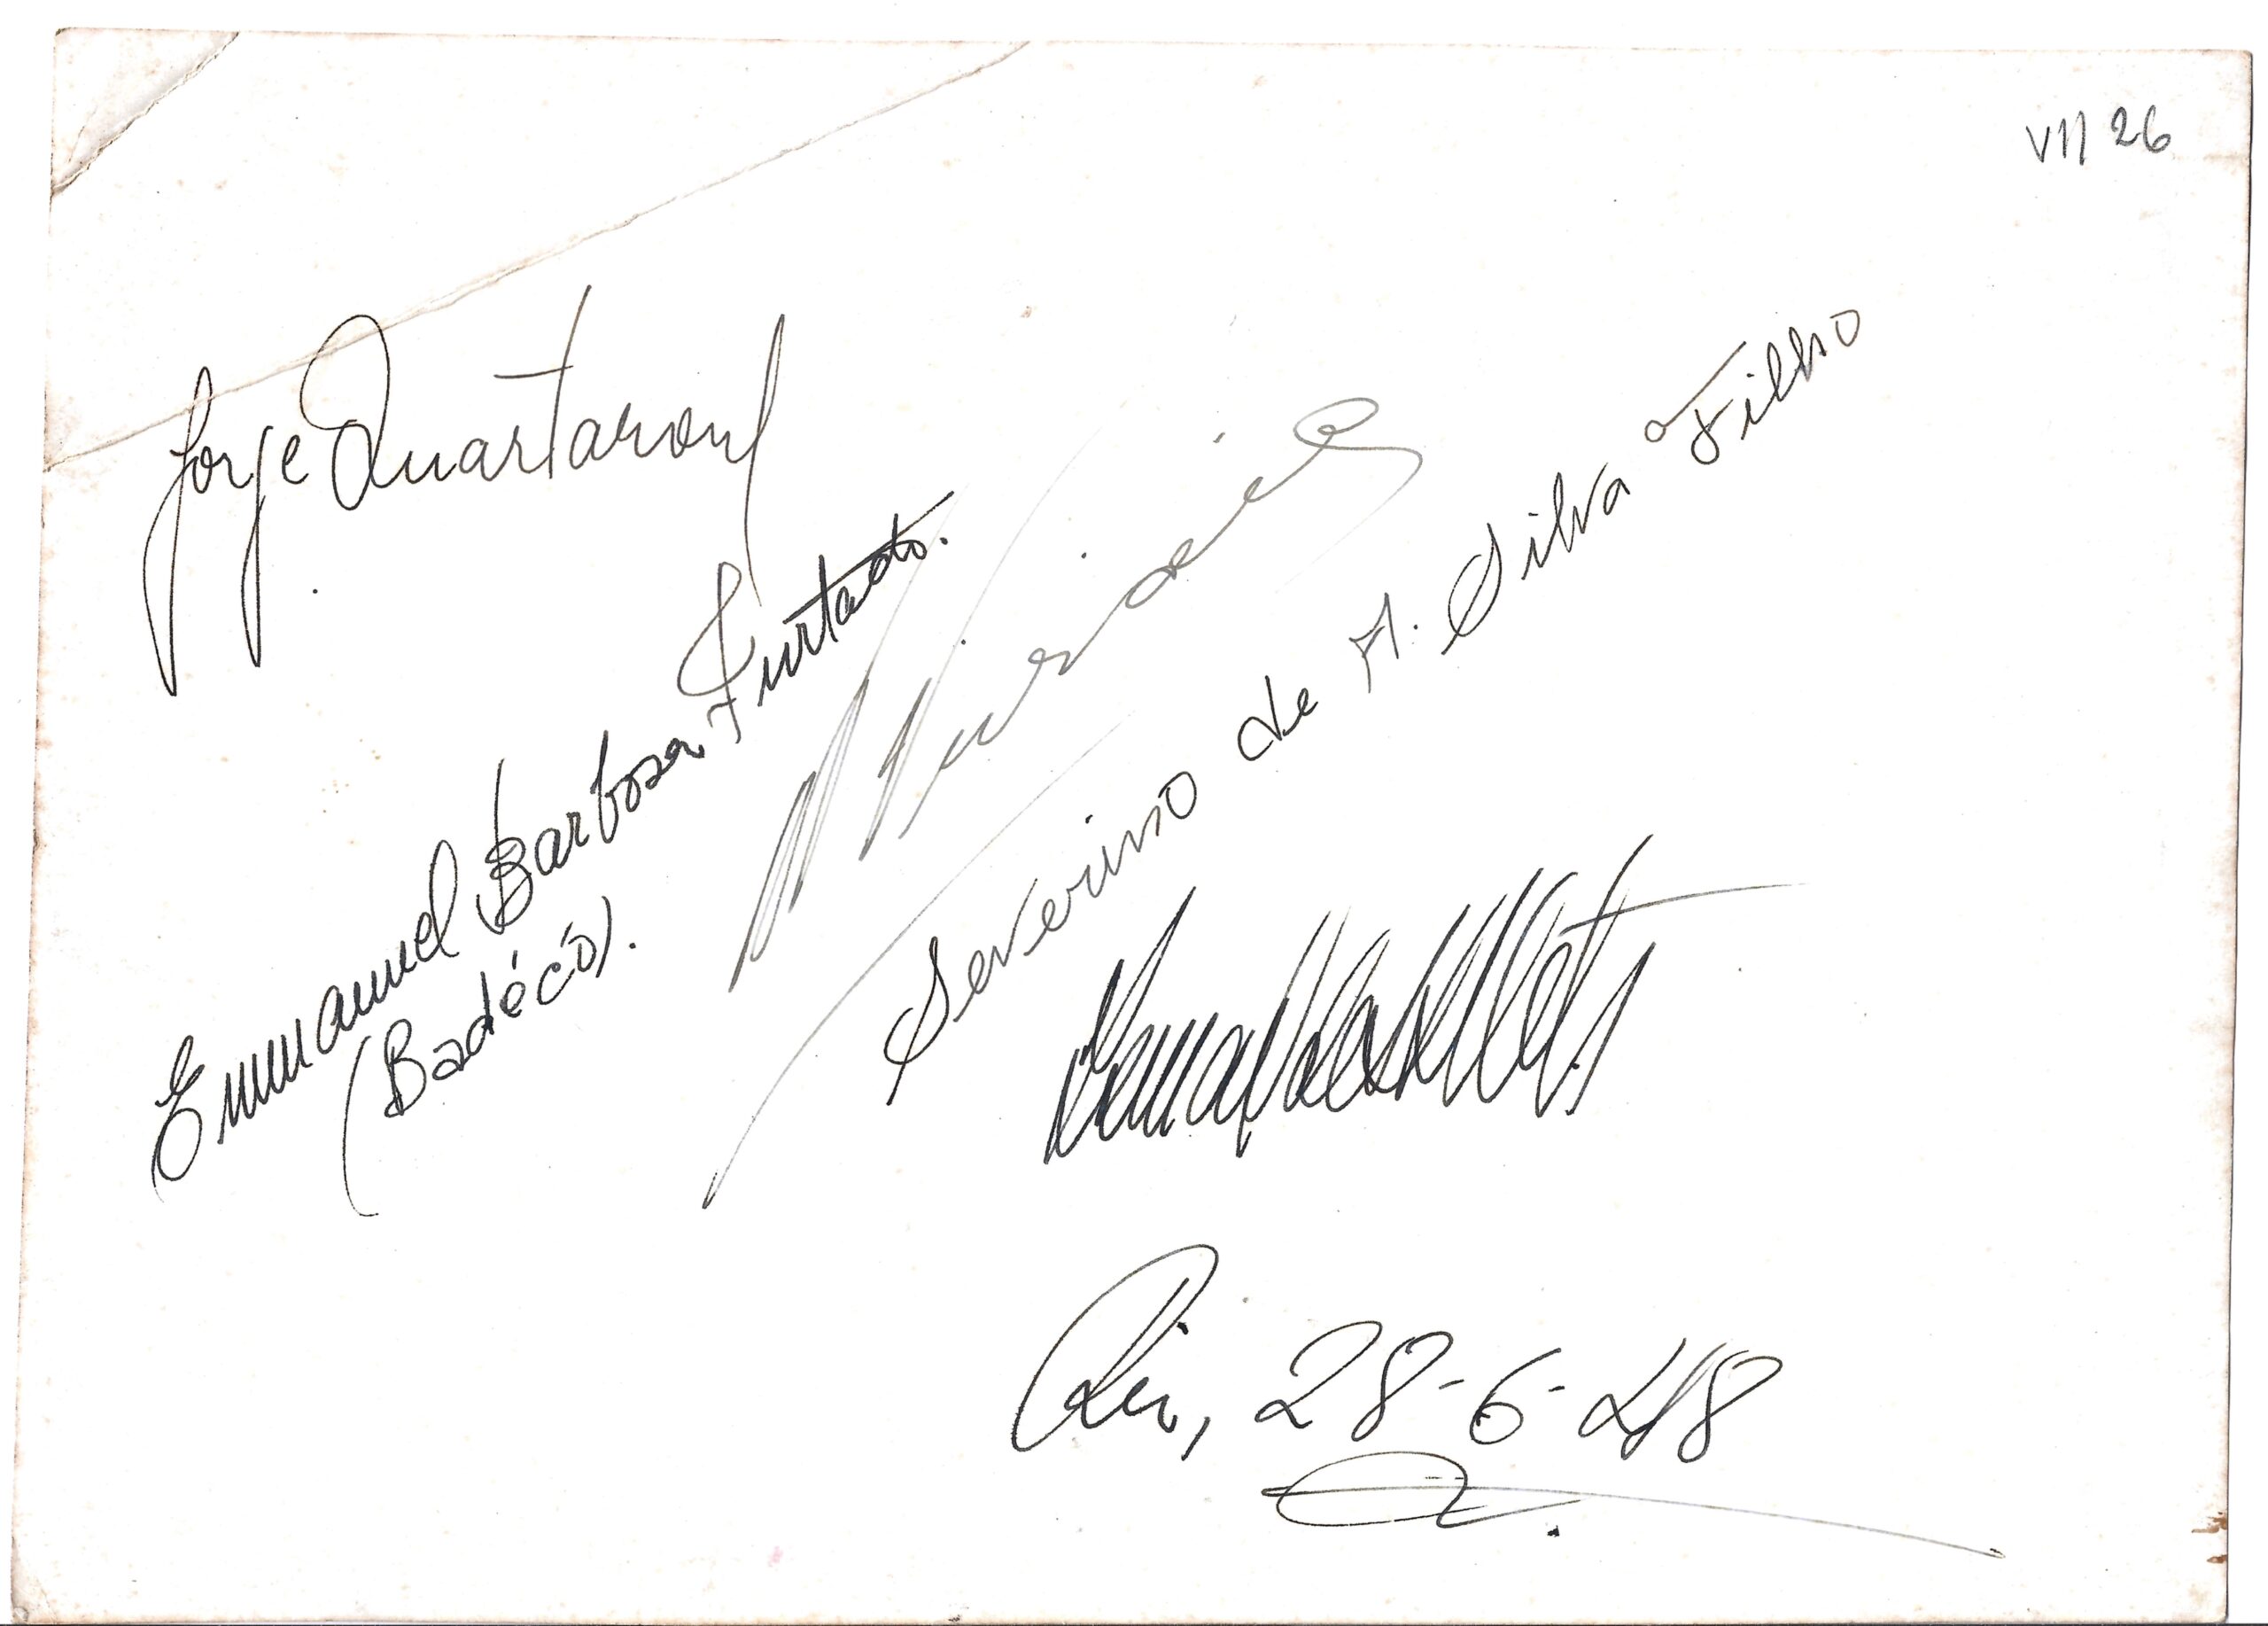 VII 26
Jorge Quartarone
Emmanuel Barbosa Furtado.
(Badéco).
Severino de A. Silva Filho
Rio, 28-6-48